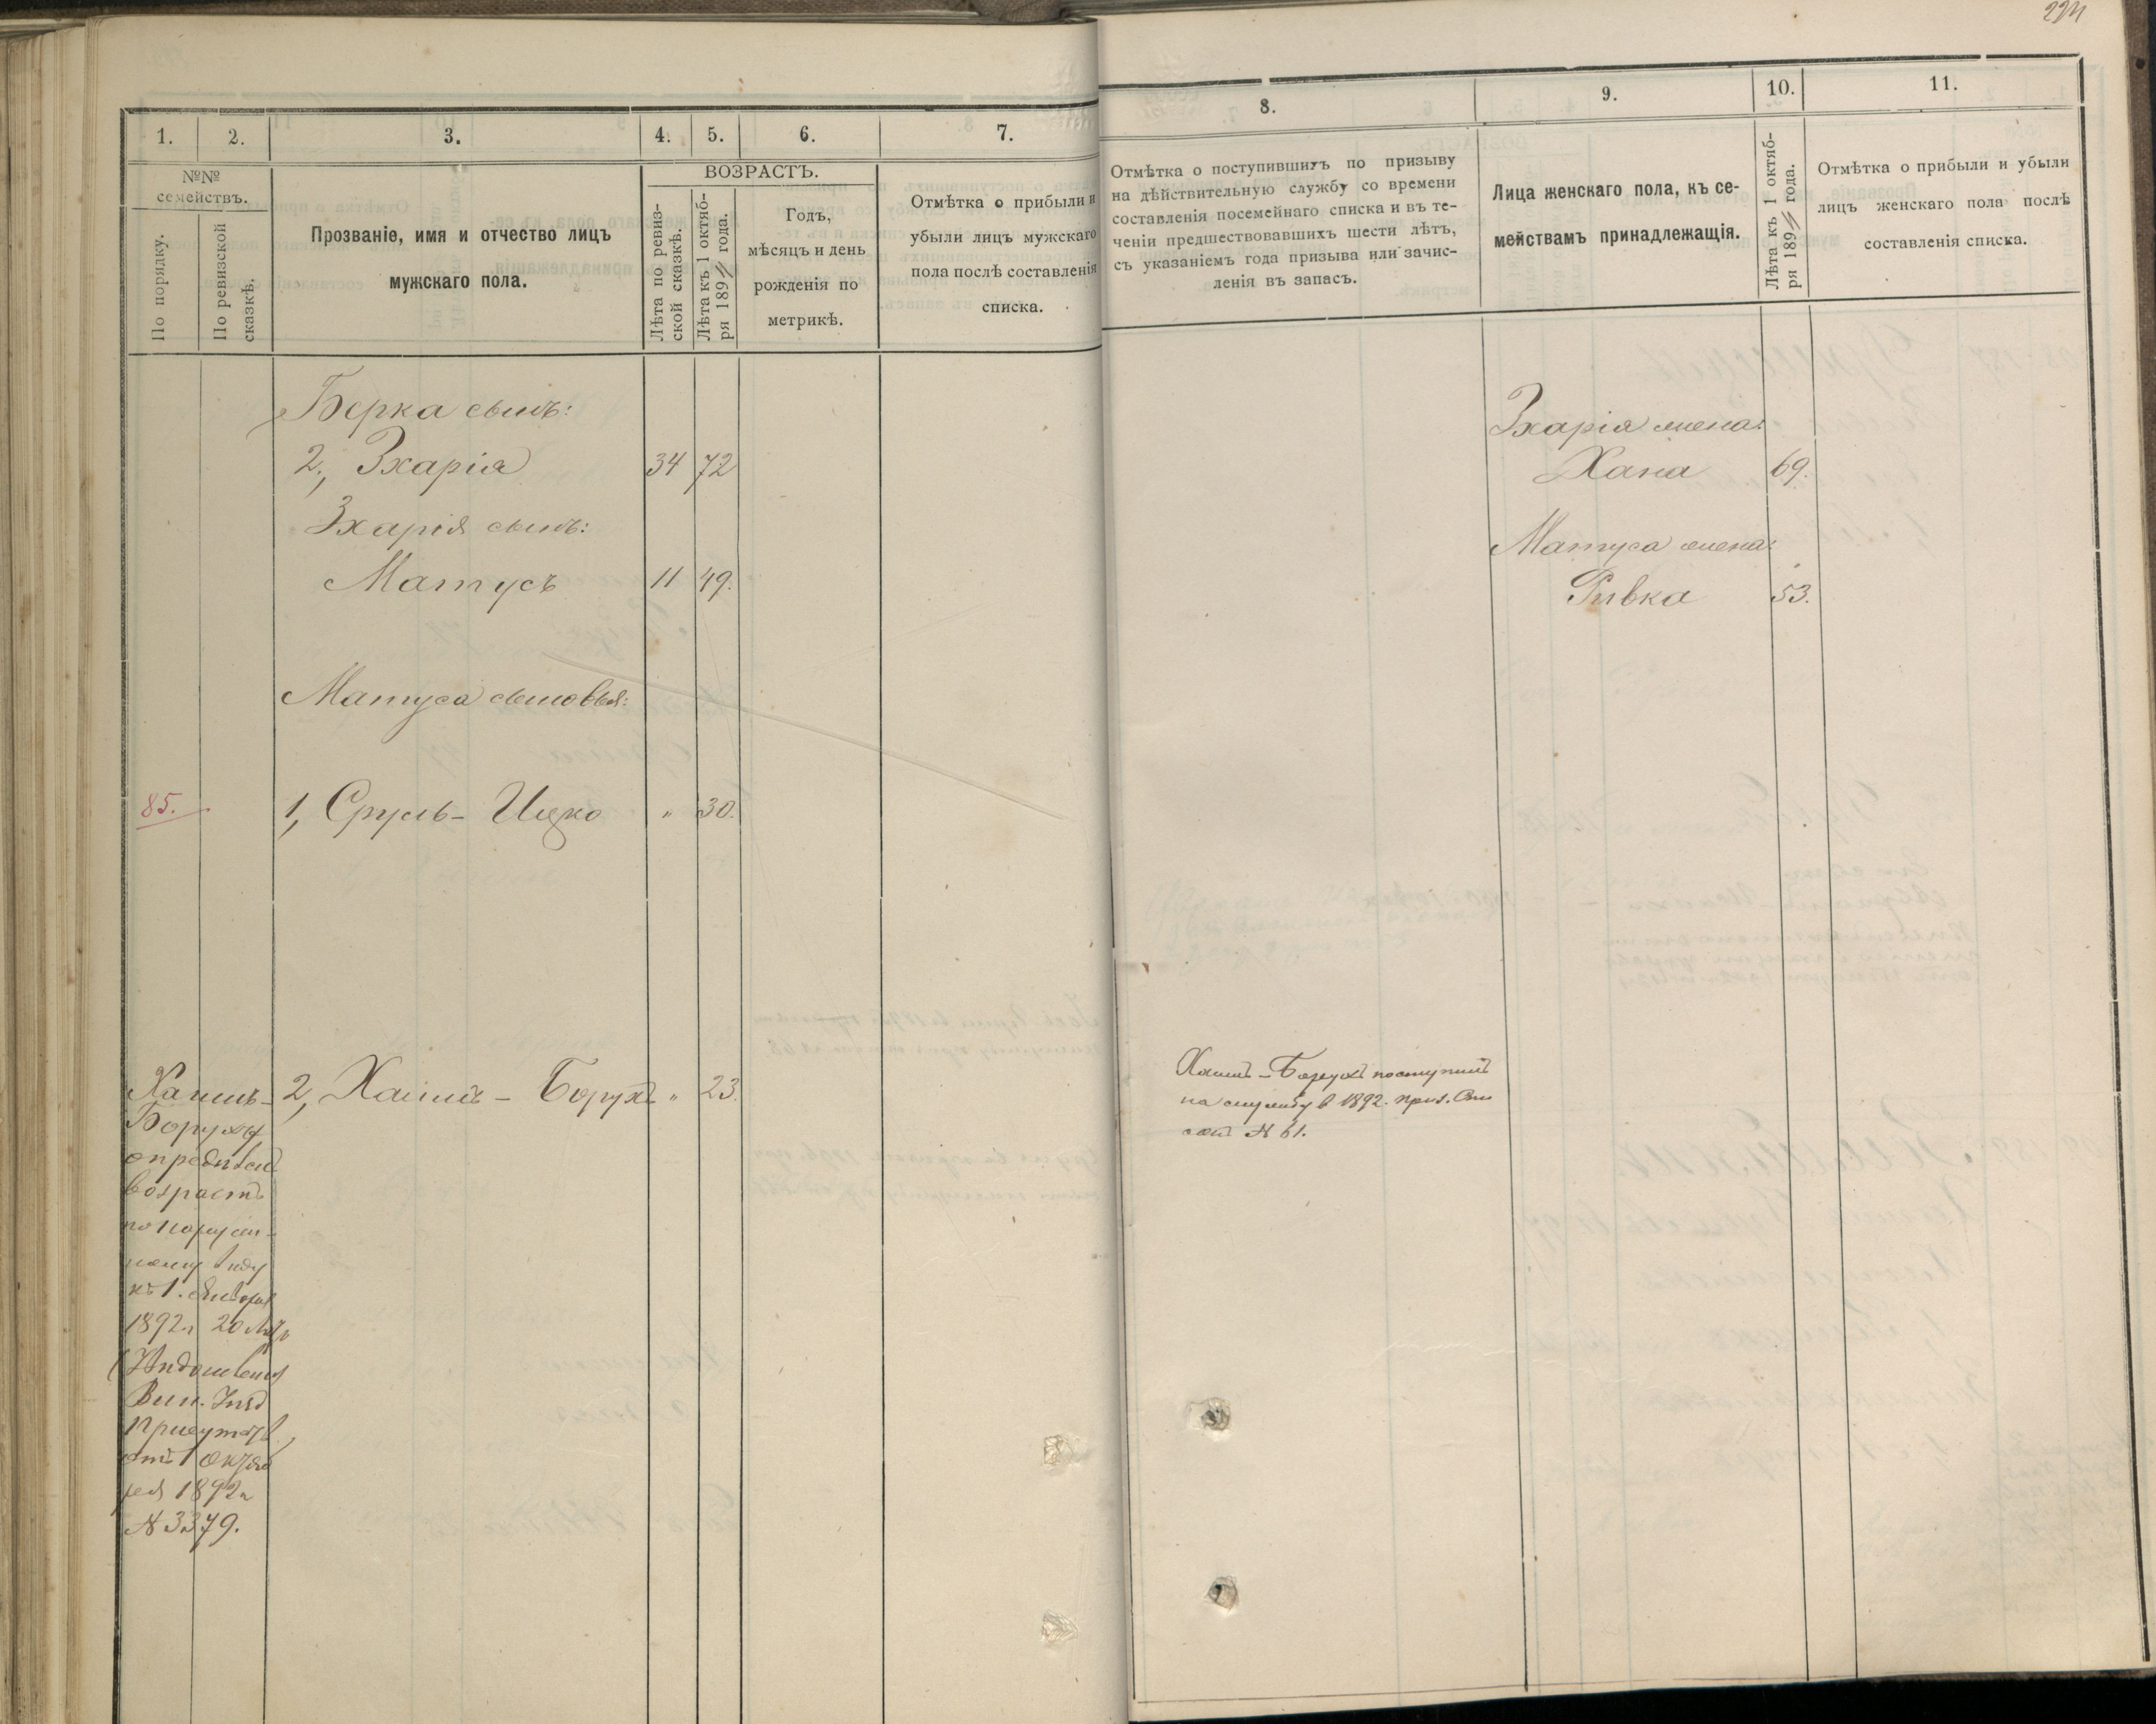 1.
2.
3.
4.
5.
6.
7.
№№ семействъ.
По порядку.
По ревизской сказкѣ.
Прозваніе, имя и отчество лицъ
мужскаго пола.
ВОЗРАСТЪ.
Лѣта по ревиз-
ской сказкѣ.
Лѣта къ 1 октяб-
ря 189 года.
Годъ,
мѣсяцъ и день
рожденія по
метрикѣ.
Отмѣтка о прибыли и
убыли лицъ мужскаго
пола послѣ составленія
списка.
Берка сынъ:
2, Зхарія 34 72
Зхарія сынъ:
Матусъ 11 49.
Матуса сыновья:
85. 1, Сруль - Ицко " 30.
2, Хаимъ - Борухъ " 23.
Хаимъ-
Боруху
опредѣленъ
возрастъ
по наруж-
ному виду
къ 1. Января
1892 г 20 лѣтъ
Вин.
Присутств.
отъ 1 Октяб
ря 1892 г
№ 3379.
8.
9.
10.
11.
Отмѣтка о поступившихъ по призыву
на дѣйствительную службу со времени
составленія посемейнаго списка и въ те-
ченіи предшествовавшихъ шести лѣтъ,
съ указаніемъ года призыва или зачис-
ленія въ запасъ.
Лица женскаго пола, къ се-
мействамъ принадлежащія.
Лѣта къ 1 октяб-
ря 189 года.
Отмѣтка о прибыли и убыли
лицъ женскаго пола послѣ
составленія списка.
Зхарія жена:
Хана 69.
Матуса жена:
Ривка 53.
Хаимъ - Борухъ поступилъ
на службу в 1892. приз. Спи
сокъ № 61.